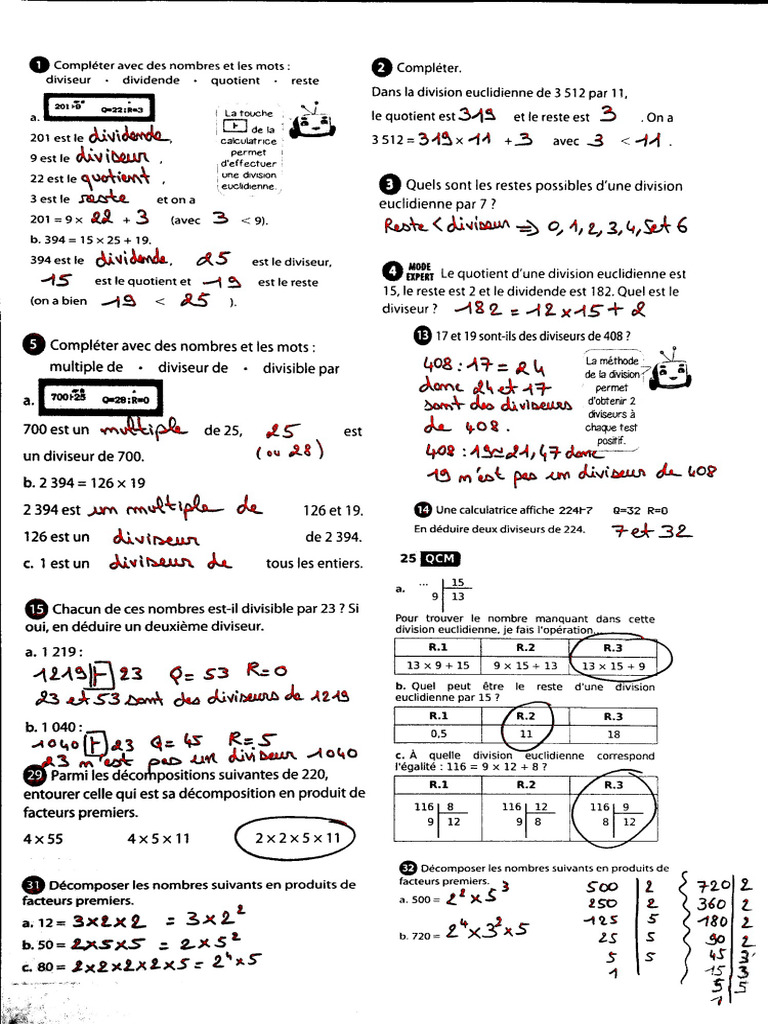 1 Compléter avec des nombres et les mots :
diviseur · dividende · quotient · reste
a. 201⊢9 Q=22:R=3
La touche
⊢ de la
calculatrice
permet
d'effectuer
une division
euclidienne.
201 est le dividende,
9 est le diviseur,
22 est le quotient,
3 est le reste et on a
201 = 9 × 22 + 3 (avec 3 < 9).
b. 394 = 15 × 25 + 19.
394 est le dividende, 25 est le diviseur,
15 est le quotient et 19 est le reste
(on a bien 19 < 25 ).
5 Compléter avec des nombres et les mots :
multiple de · diviseur de · divisible par
a. 700⊢25 Q=28:R=0
700 est un multiple de 25, 25 est
(ou 28)
un diviseur de 700.
b. 2 394 = 126 × 19
2 394 est un multiple de 126 et 19.
126 est un diviseur de 2 394.
c. 1 est un diviseur de tous les entiers.
15 Chacun de ces nombres est-il divisible par 23 ? Si
oui, en déduire un deuxième diviseur.
a. 1 219 :
1219 ⊢ 23 Q= 53 R=0
23 et 53 sont des diviseurs de 1219
b. 1 040 :
1040 ⊢ 23 Q= 45 R= 5
23 n'est pas un diviseur 1040
29 Parmi les décompositions suivantes de 220,
entourer celle qui est sa décomposition en produit de
facteurs premiers.
4 × 55 4 × 5 × 11 2 × 2 × 5 × 11
31 Décomposer les nombres suivants en produits de
facteurs premiers.
a. 12 = 3×2×2 = 3×2²
b. 50 = 2×5×5 = 2×5²
c. 80 = 2×2×2×2×5 = 2⁴×5
2 Compléter.
Dans la division euclidienne de 3 512 par 11,
le quotient est 319 et le reste est 3 . On a
3 512 = 319 × 11 + 3 avec 3 < 11 .
3 Quels sont les restes possibles d'une division
euclidienne par 7 ?
Reste < diviseur ⇒ 0, 1, 2, 3, 4, 5 et 6
4 MODE EXPERT Le quotient d'une division euclidienne est
15, le reste est 2 et le dividende est 182. Quel est le
diviseur ? 182 = 12×15 + 2
13 17 et 19 sont-ils des diviseurs de 408 ?
408 : 17 = 24
donc 24 et 17
sont des diviseurs
de 408.
408 : 19 ≃ 21,47 donc
19 n'est pas un diviseur de 408
La méthode
de la division
permet
d'obtenir 2
diviseurs à
chaque test
positif.
14 Une calculatrice affiche 224⊢7 Q=32 R=0
En déduire deux diviseurs de 224. 7 et 32
25 QCM
a. ... 15
9 13
Pour trouver le nombre manquant dans cette
division euclidienne, je fais l'opération...
R.1 R.2 R.3
13 × 9 + 15 9 × 15 + 13 13 × 15 + 9
b. Quel peut être le reste d'une division
euclidienne par 15 ?
R.1 R.2 R.3
0,5 11 18
c. À quelle division euclidienne correspond
l'égalité : 116 = 9 × 12 + 8 ?
R.1 R.2 R.3
116 8 116 12 116 9
9 12 9 8 8 12
32 Décomposer les nombres suivants en produits de
facteurs premiers.
a. 500 = 2²×5³
b. 720 = 2⁴×3²×5
500 2
250 2
125 5
25 5
5 5
1
720 2
360 2
180 2
90 2
45 3
15 3
5 5
1